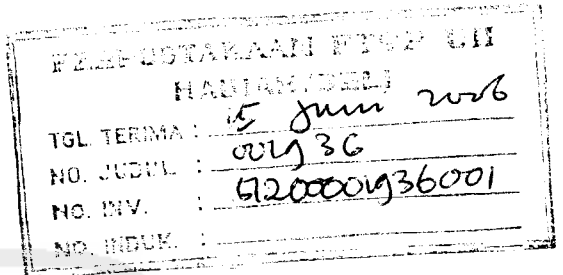 PERPUSTAKAAN FTSP UII
HADIAH/BELI
TGL. TERIMA : 15 Juni 2006
NO. JUDUL : 001936
NO. INV. : 5120001936001
NO. INDUK. :